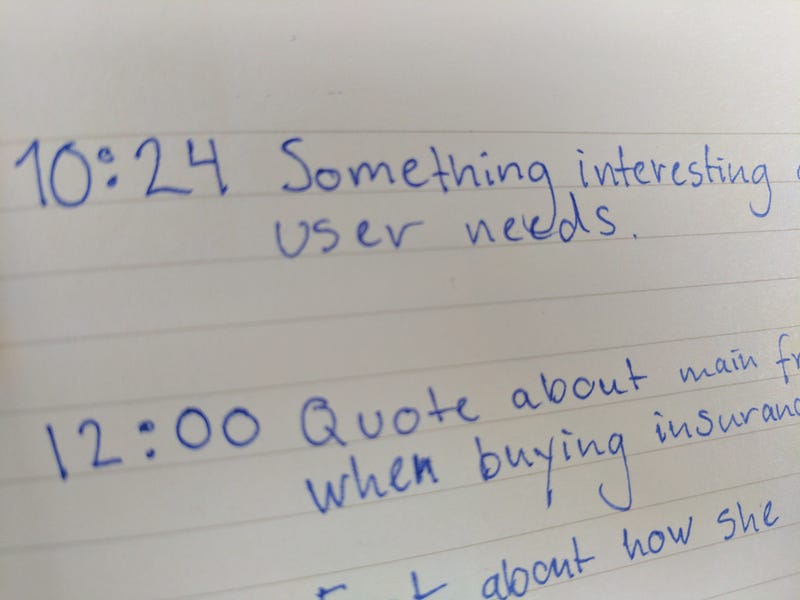 10:24 Something interesting
user needs.
12:00 Quote about main
when buying
about how she